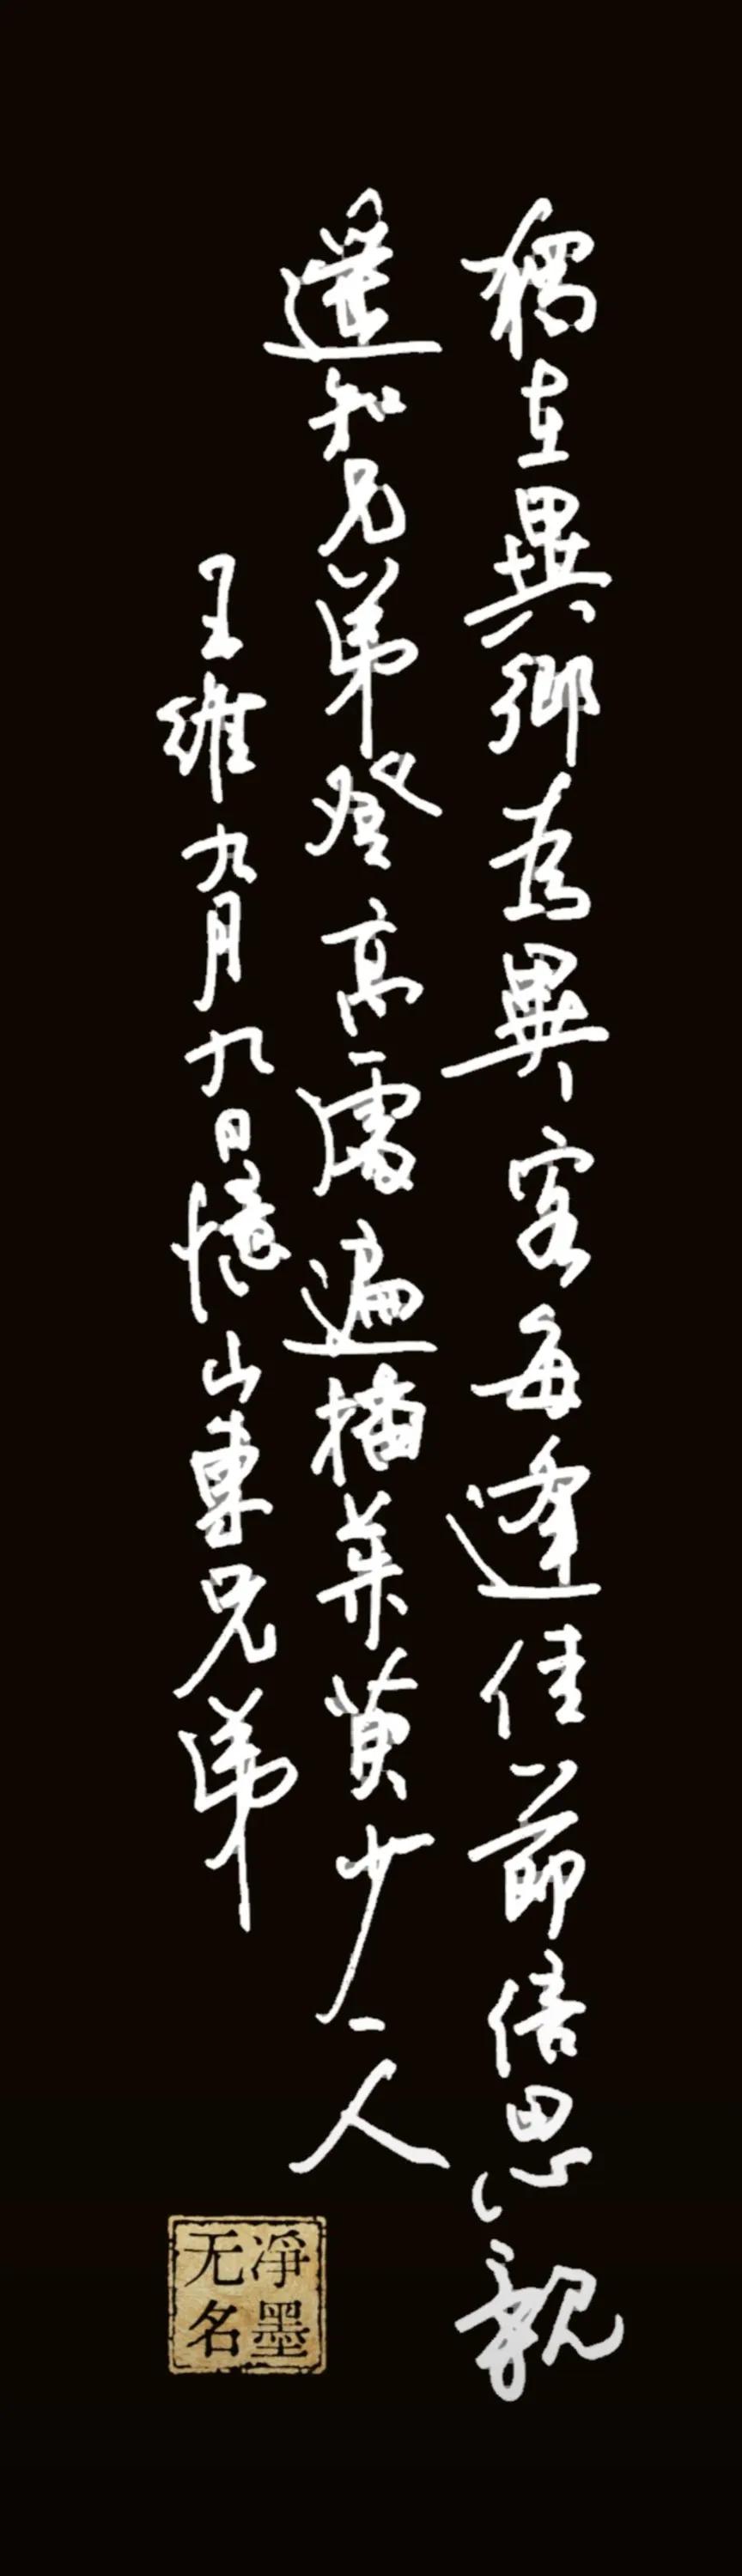 獨在異鄉為異客每逢佳節倍思親
遥知兄弟登高處遍插茱萸少一人
王維九月九日憶山東兄弟
凈墨
无名